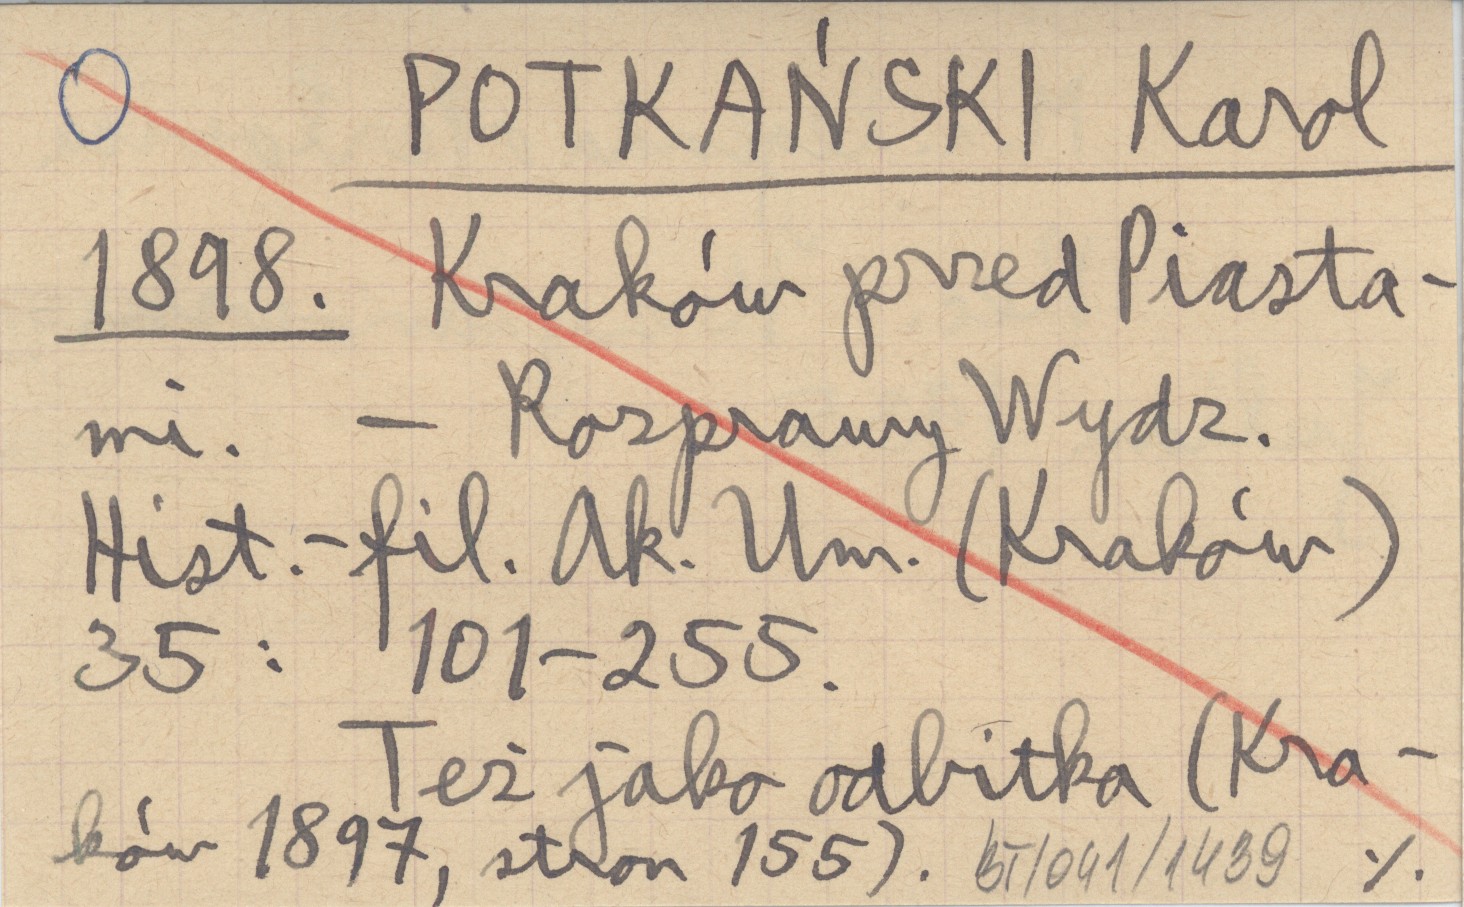 POTKAŃSKI Karol
1898. Kraków przed Piasta-
mi. — Rozprawy Wydz.
Hist.-fil. Ak. Um. (Kraków)
35: 101-255.
Też jako odbitka (Kra-
ków 1897, stron 155). BT/041/1439 ./.